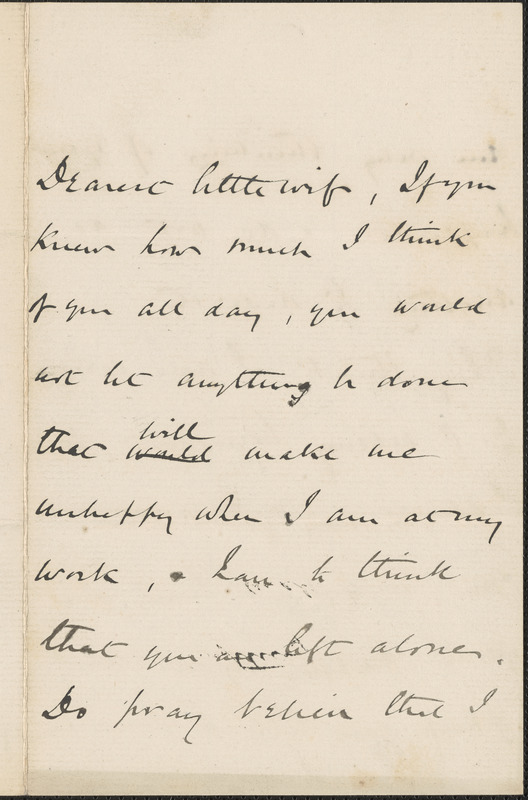 Dearest little wife, If you
knew how much I think
of you all day, you would
not let anything be done
that ~~would~~ will make me
unhappy when I am at my
work, to think
that you are left alone.
Do pray believe that I